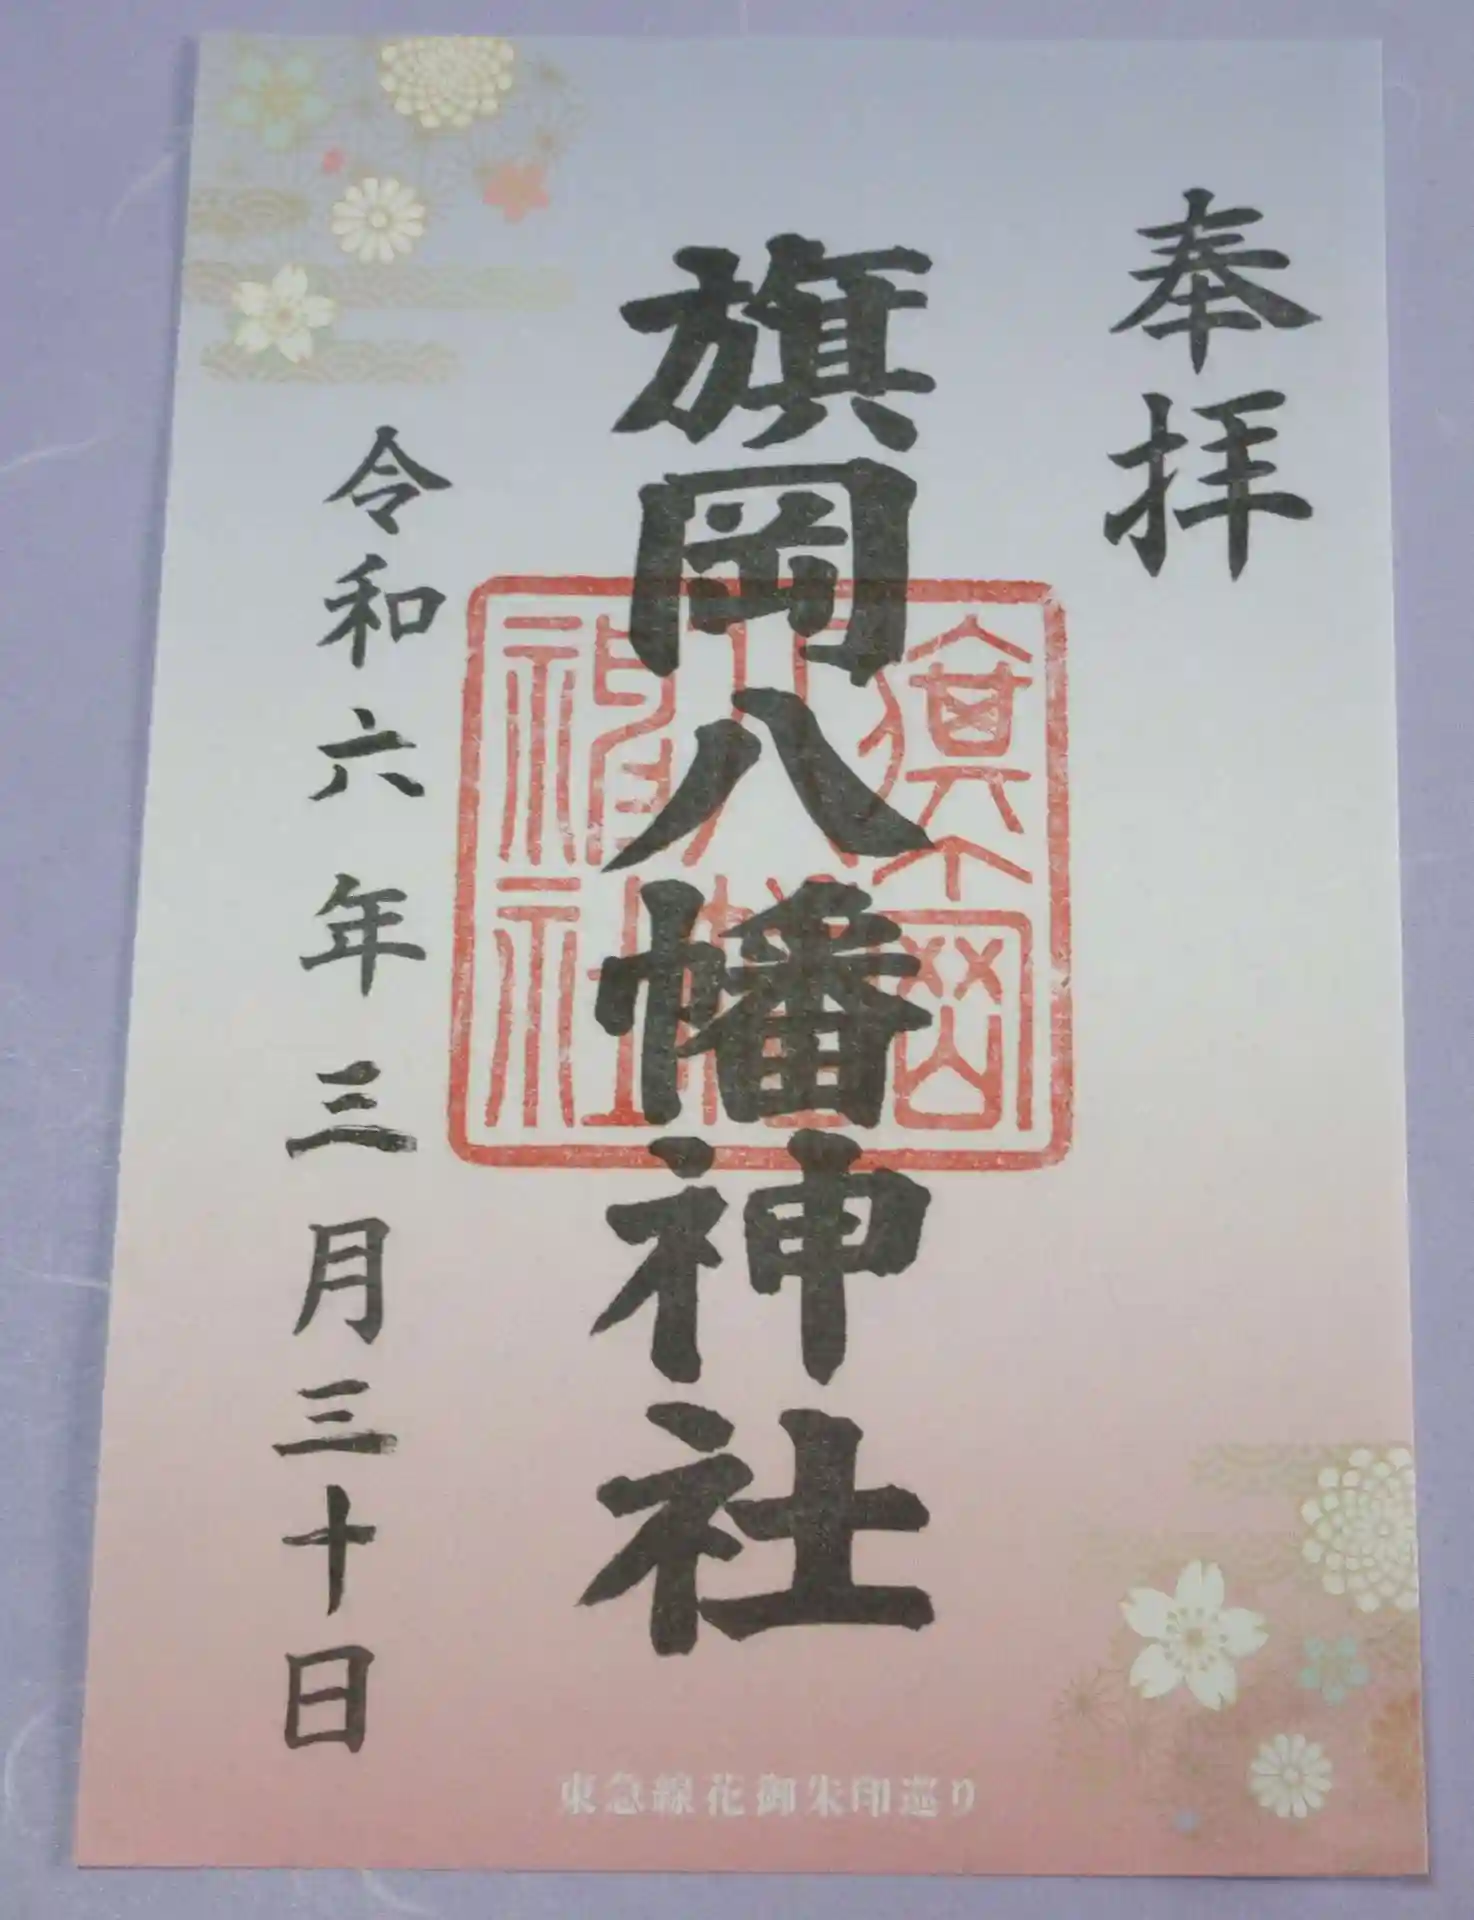 奉拝
旗岡八幡神社
旗岡
八幡
神社
令和六年三月三十日
東急線花御朱印巡り